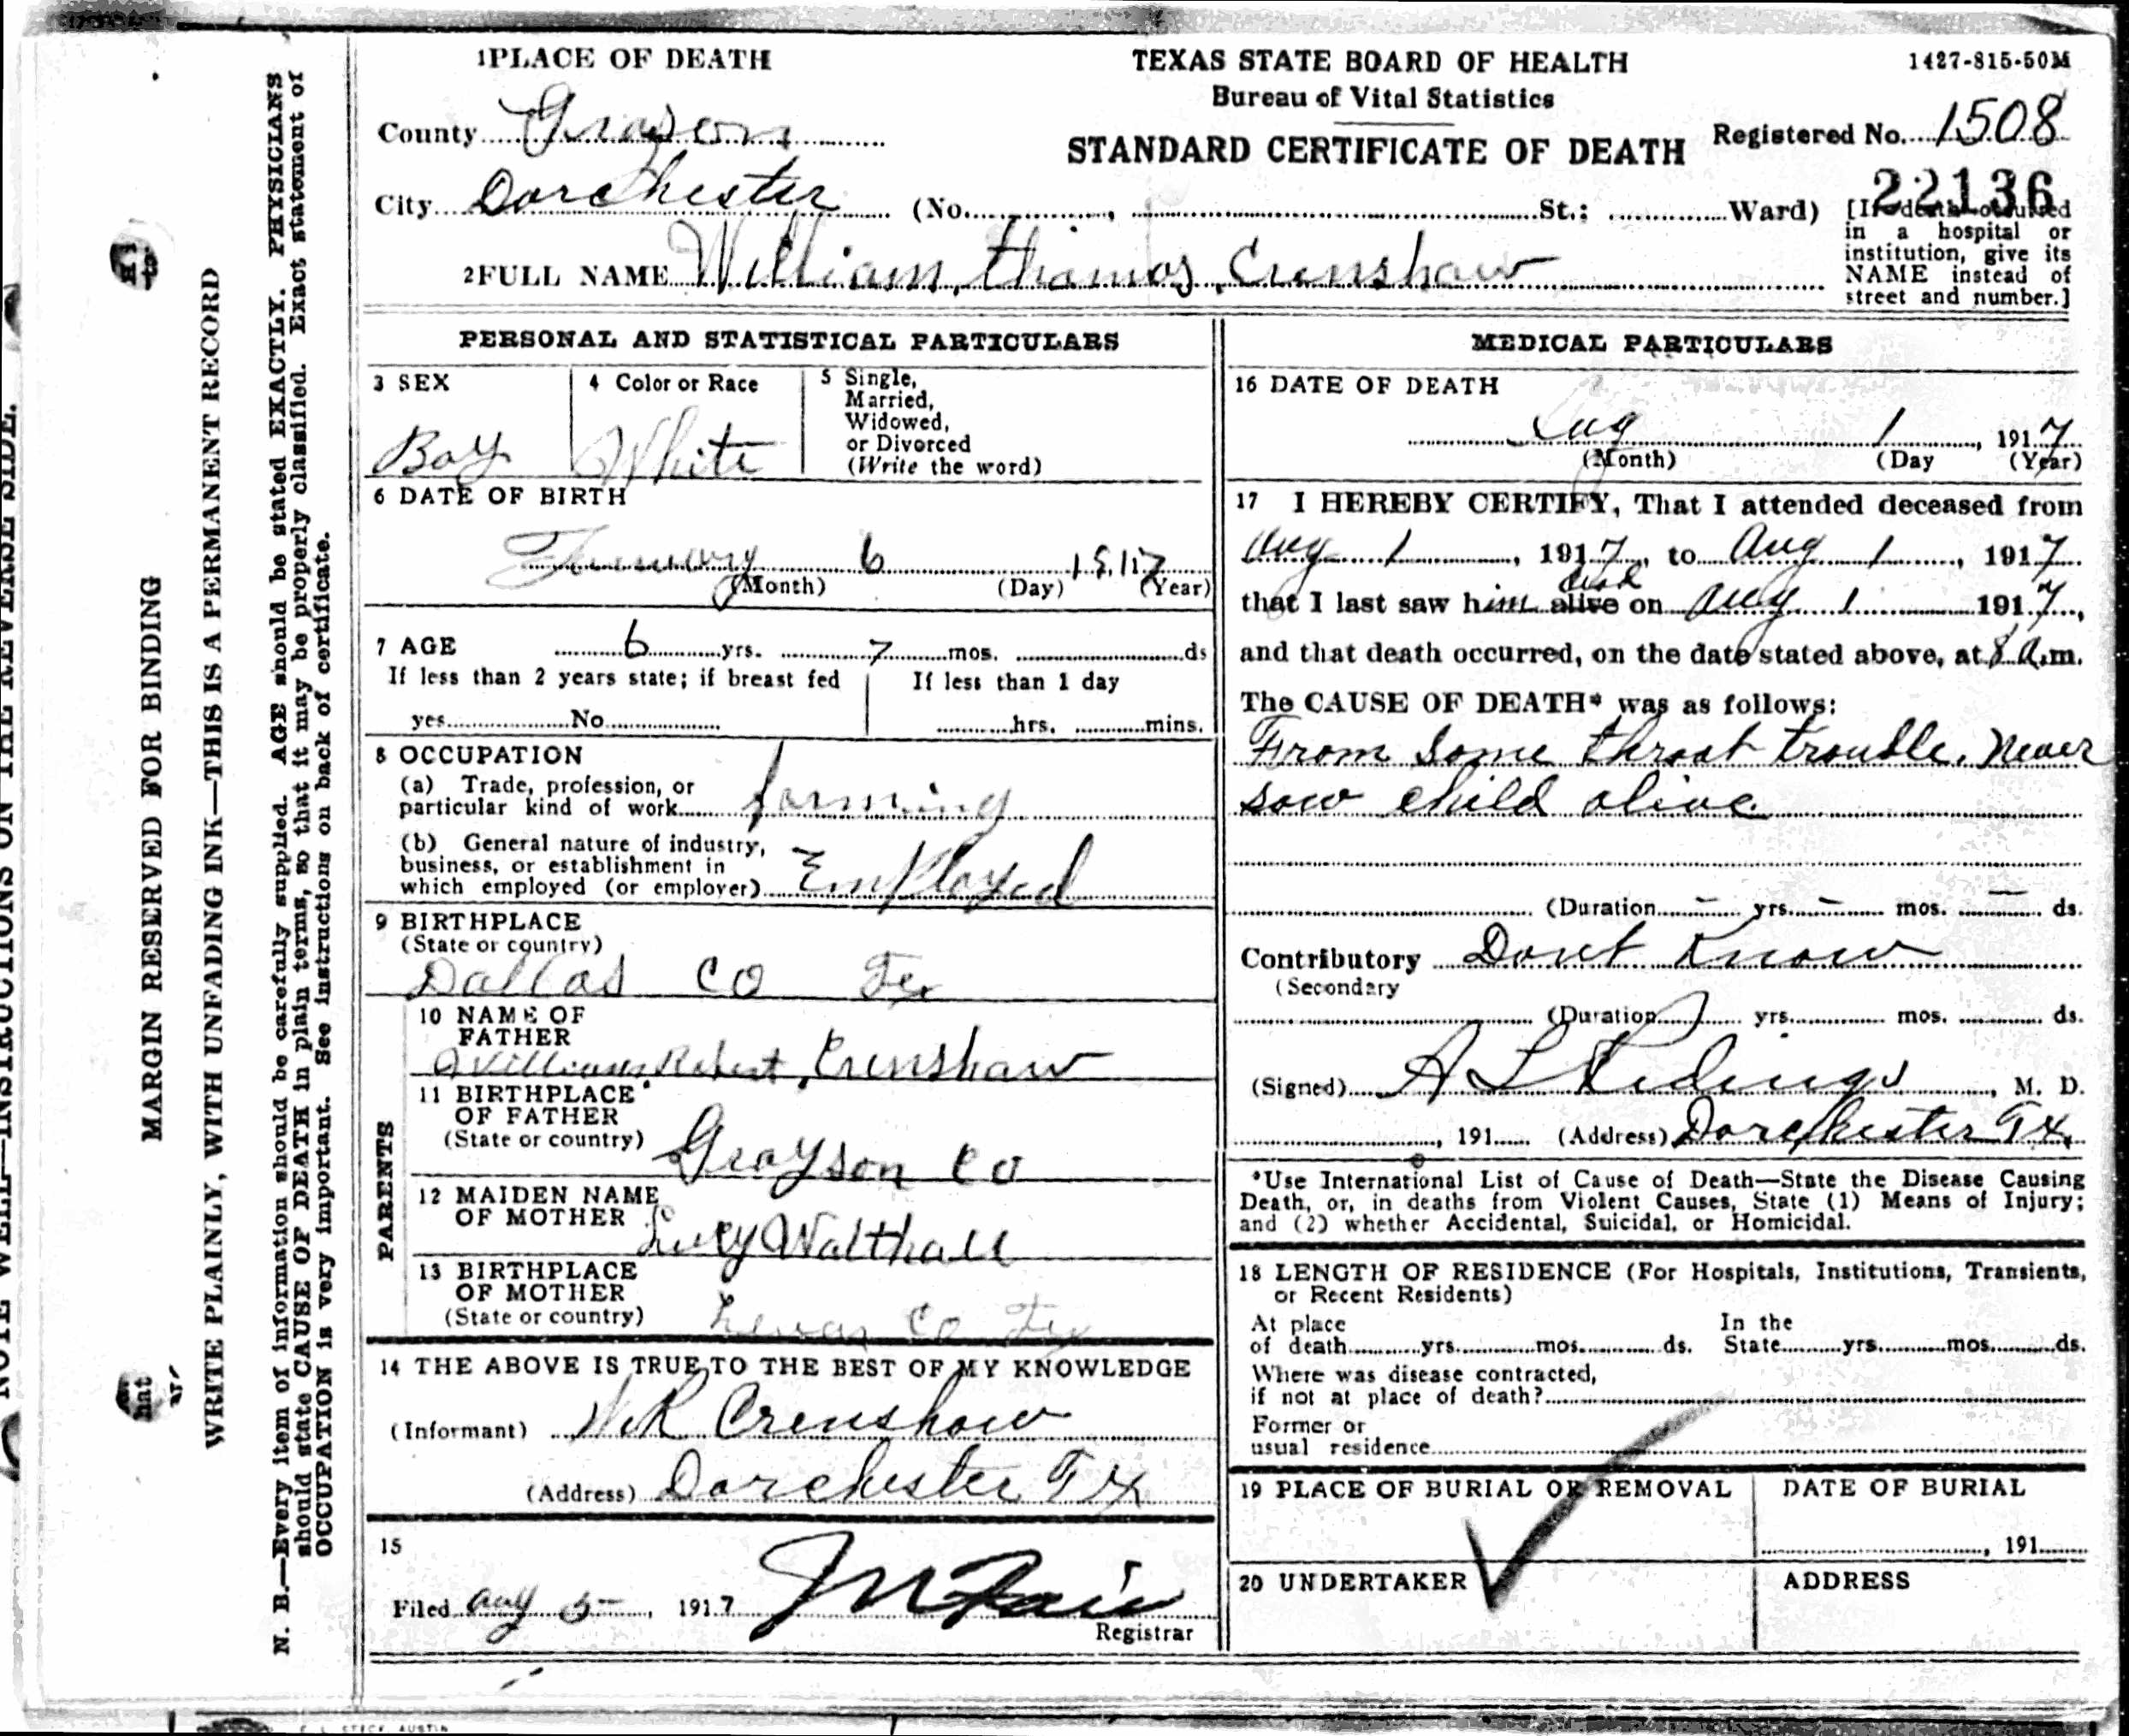 1PLACE OF DEATH
TEXAS STATE BOARD OF HEALTH
1427-815-50M
Bureau of Vital Statistics
County Grayson
STANDARD CERTIFICATE OF DEATH
Registered No. 1508
22136
City Dorchester (No. , St.; Ward)
[If death occurred
in a hospital or
institution, give its
NAME instead of
street and number.]
2FULL NAME William thomas Crenshaw
PERSONAL AND STATISTICAL PARTICULARS
3 SEX
Boy
4 Color or Race
White
5 Single,
Married,
Widowed,
or Divorced
(Write the word)
6 DATE OF BIRTH
6
(Month) (Day) (Year)
7 AGE 6 yrs. 7 mos. ds
If less than 2 years state; if breast fed
yes No
If less than 1 day
hrs. mins.
8 OCCUPATION
(a) Trade, profession, or
particular kind of work farming
(b) General nature of industry,
business, or establishment in
which employed (or employer) Employed
9 BIRTHPLACE
(State or country)
Dallas Co Tex
PARENTS
10 NAME OF
FATHER
William Robert Crenshaw
11 BIRTHPLACE
OF FATHER
(State or country) Grayson Co
12 MAIDEN NAME
OF MOTHER Lucy Walthall
13 BIRTHPLACE
OF MOTHER
(State or country) Co Tex
14 THE ABOVE IS TRUE TO THE BEST OF MY KNOWLEDGE
(Informant) W R Crenshaw
(Address) Dorchester Tx
15
Filed Aug 5, 1917
Registrar
MEDICAL PARTICULARS
16 DATE OF DEATH
Aug 1, 1917
(Month) (Day (Year)
17 I HEREBY CERTIFY, That I attended deceased from
Aug 1, 1917, to Aug 1, 1917
dead
that I last saw him alive on Aug 1 1917,
and that death occurred, on the date stated above, at 8 a.m.
The CAUSE OF DEATH* was as follows:
From some throat trouble. Never
saw child alive
(Duration - yrs. - mos. - ds.
Contributory Dont Know
(Secondary
(Duration yrs. mos. ds.
(Signed) A L Ridings, M. D.
, 191 (Address) Dorchester Tx.
*Use International List of Cause of Death—State the Disease Causing
Death, or, in deaths from Violent Causes, State (1) Means of Injury;
and (2) whether Accidental, Suicidal, or Homicidal.
18 LENGTH OF RESIDENCE (For Hospitals, Institutions, Transients,
or Recent Residents)
At place
of death yrs. mos. ds.
In the
State yrs. mos. ds.
Where was disease contracted,
if not at place of death?
Former or
usual residence
19 PLACE OF BURIAL OR REMOVAL
DATE OF BURIAL
, 191
20 UNDERTAKER
ADDRESS
MARGIN RESERVED FOR BINDING
WRITE PLAINLY, WITH UNFADING INK—THIS IS A PERMANENT RECORD
N. B.—Every item of information should be carefully supplied. AGE should be stated EXACTLY. PHYSICIANS
should state CAUSE OF DEATH in plain terms, so that it may be properly classified. Exact statement of
OCCUPATION is very important. See instructions on back of certificate.
NOTE WELL—INSTRUCTIONS ON THE REVERSE SIDE.